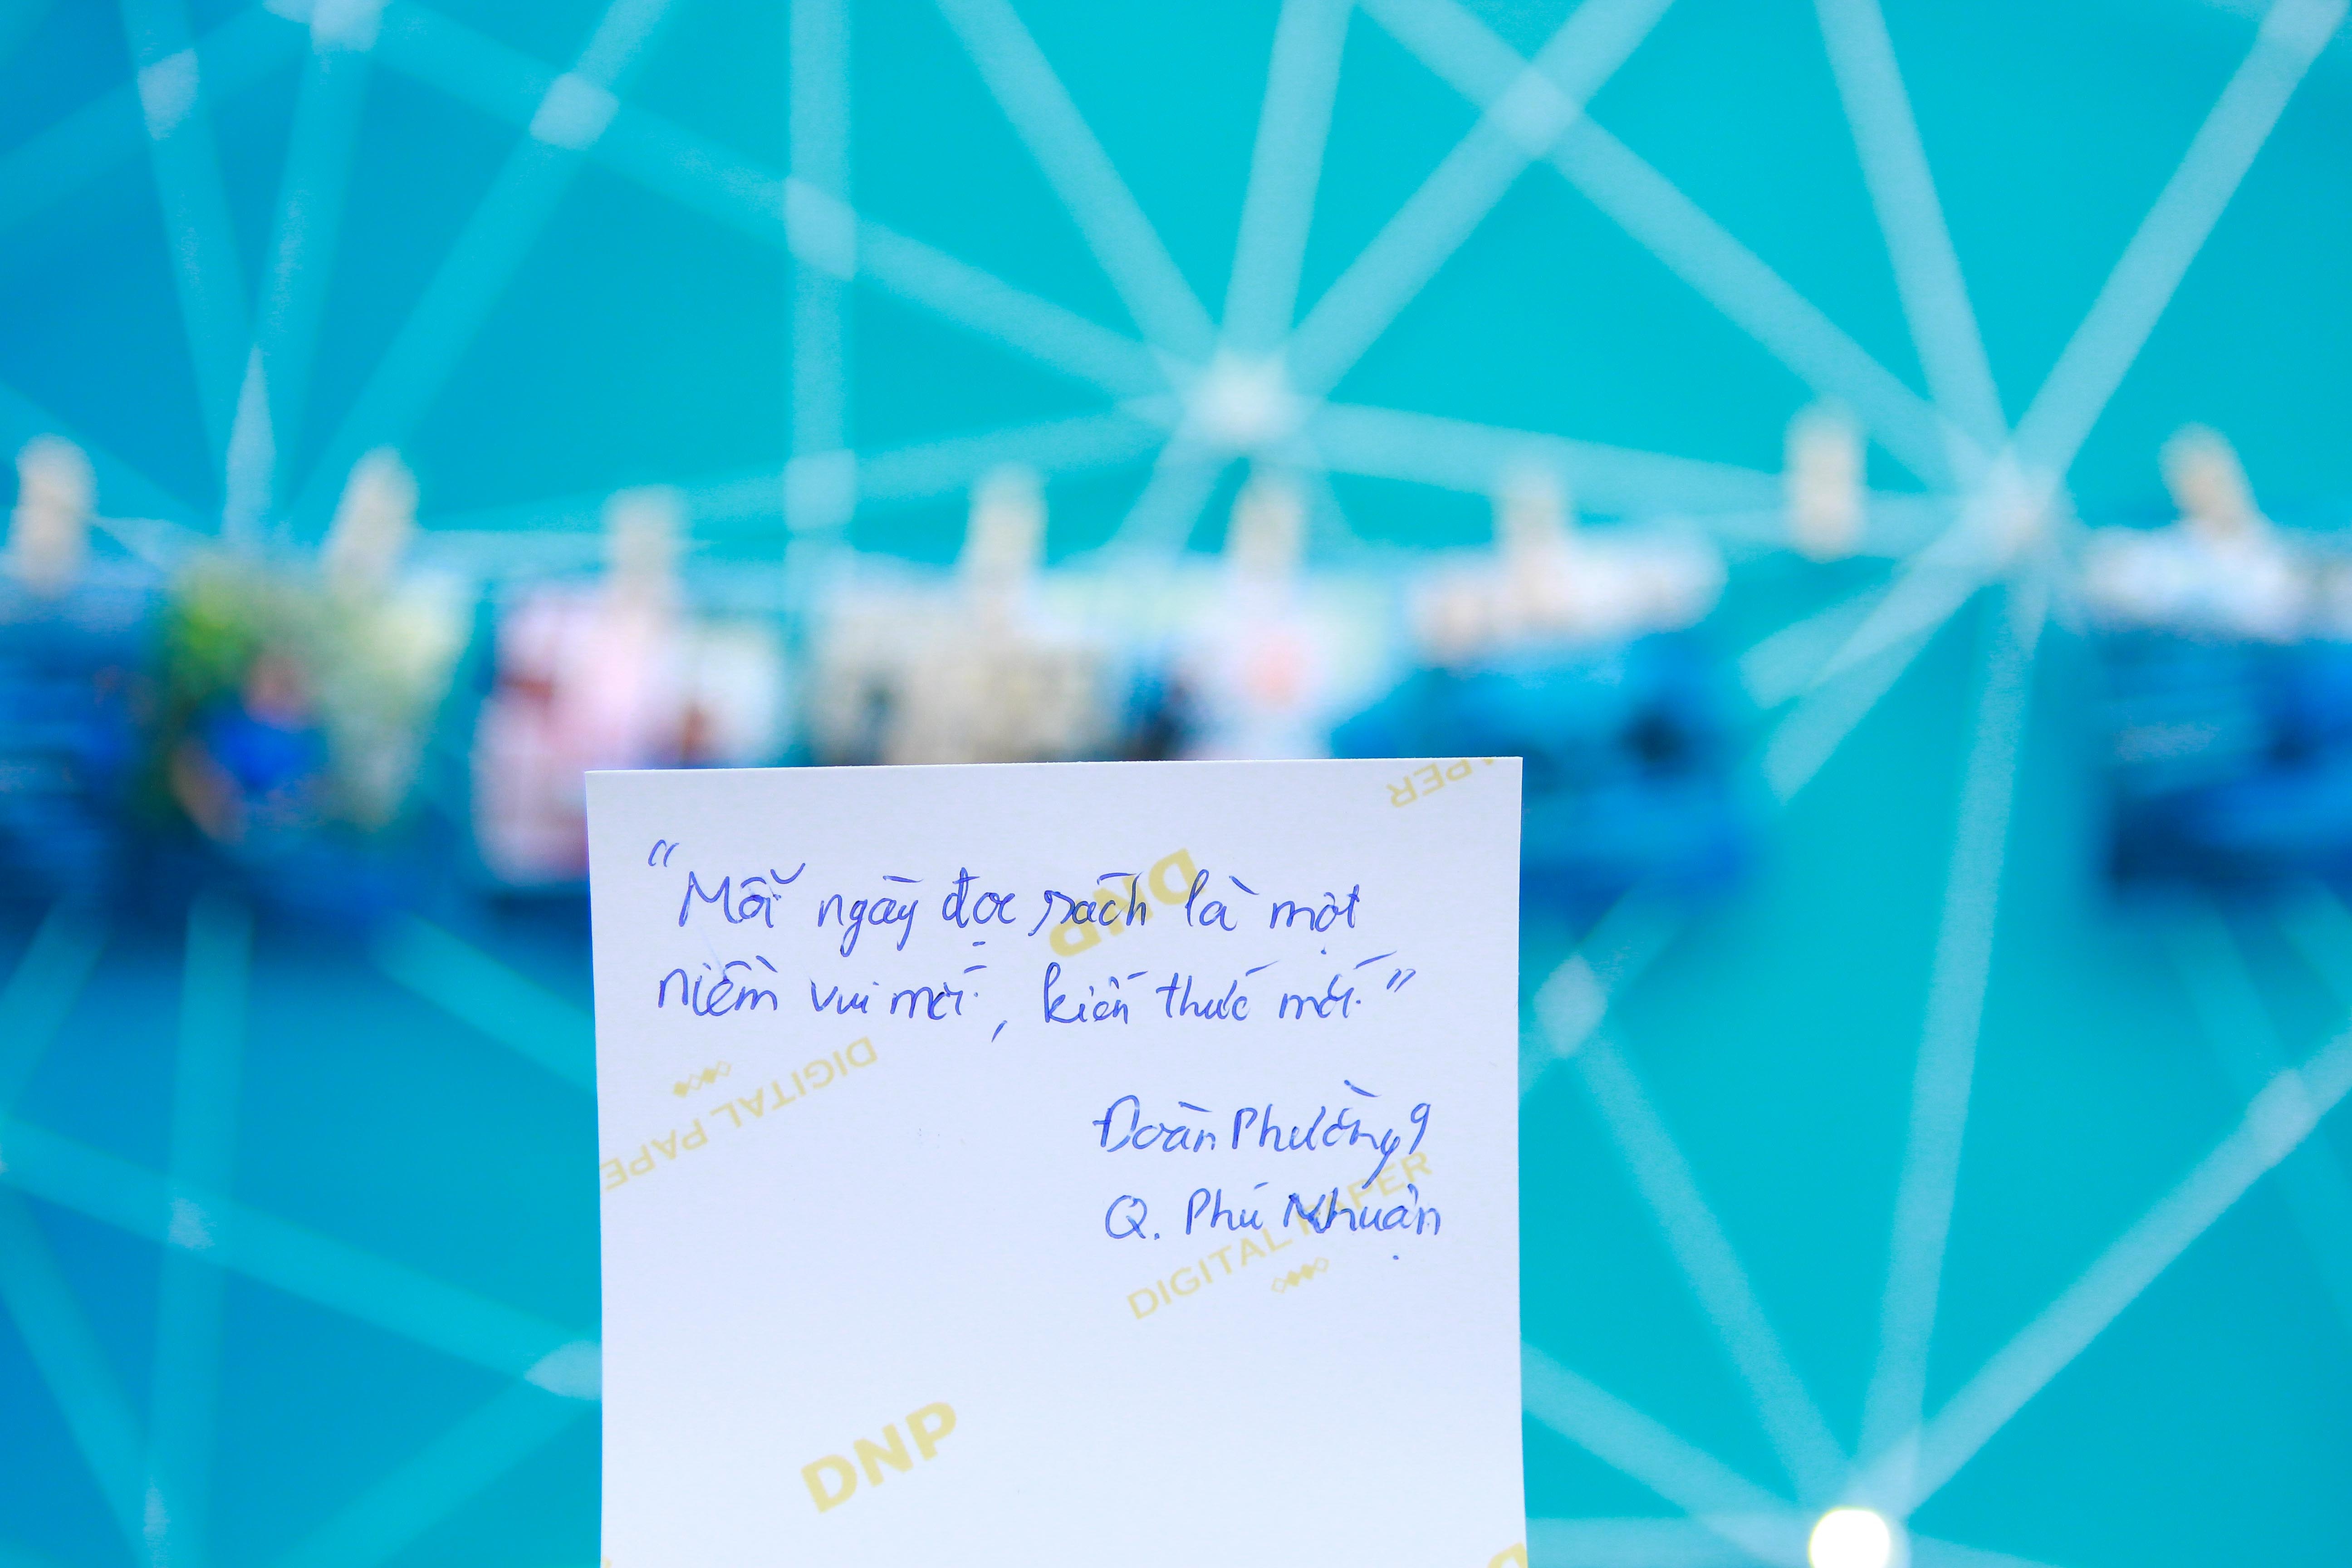 PAPER
DNP
“Mỗi ngày đọc sách là một
niềm vui mới, kiến thức mới.”
DIGITAL PAPE
Đoàn Phường 9
Q. Phú Nhuận
DIGITAL PAPER
DNP